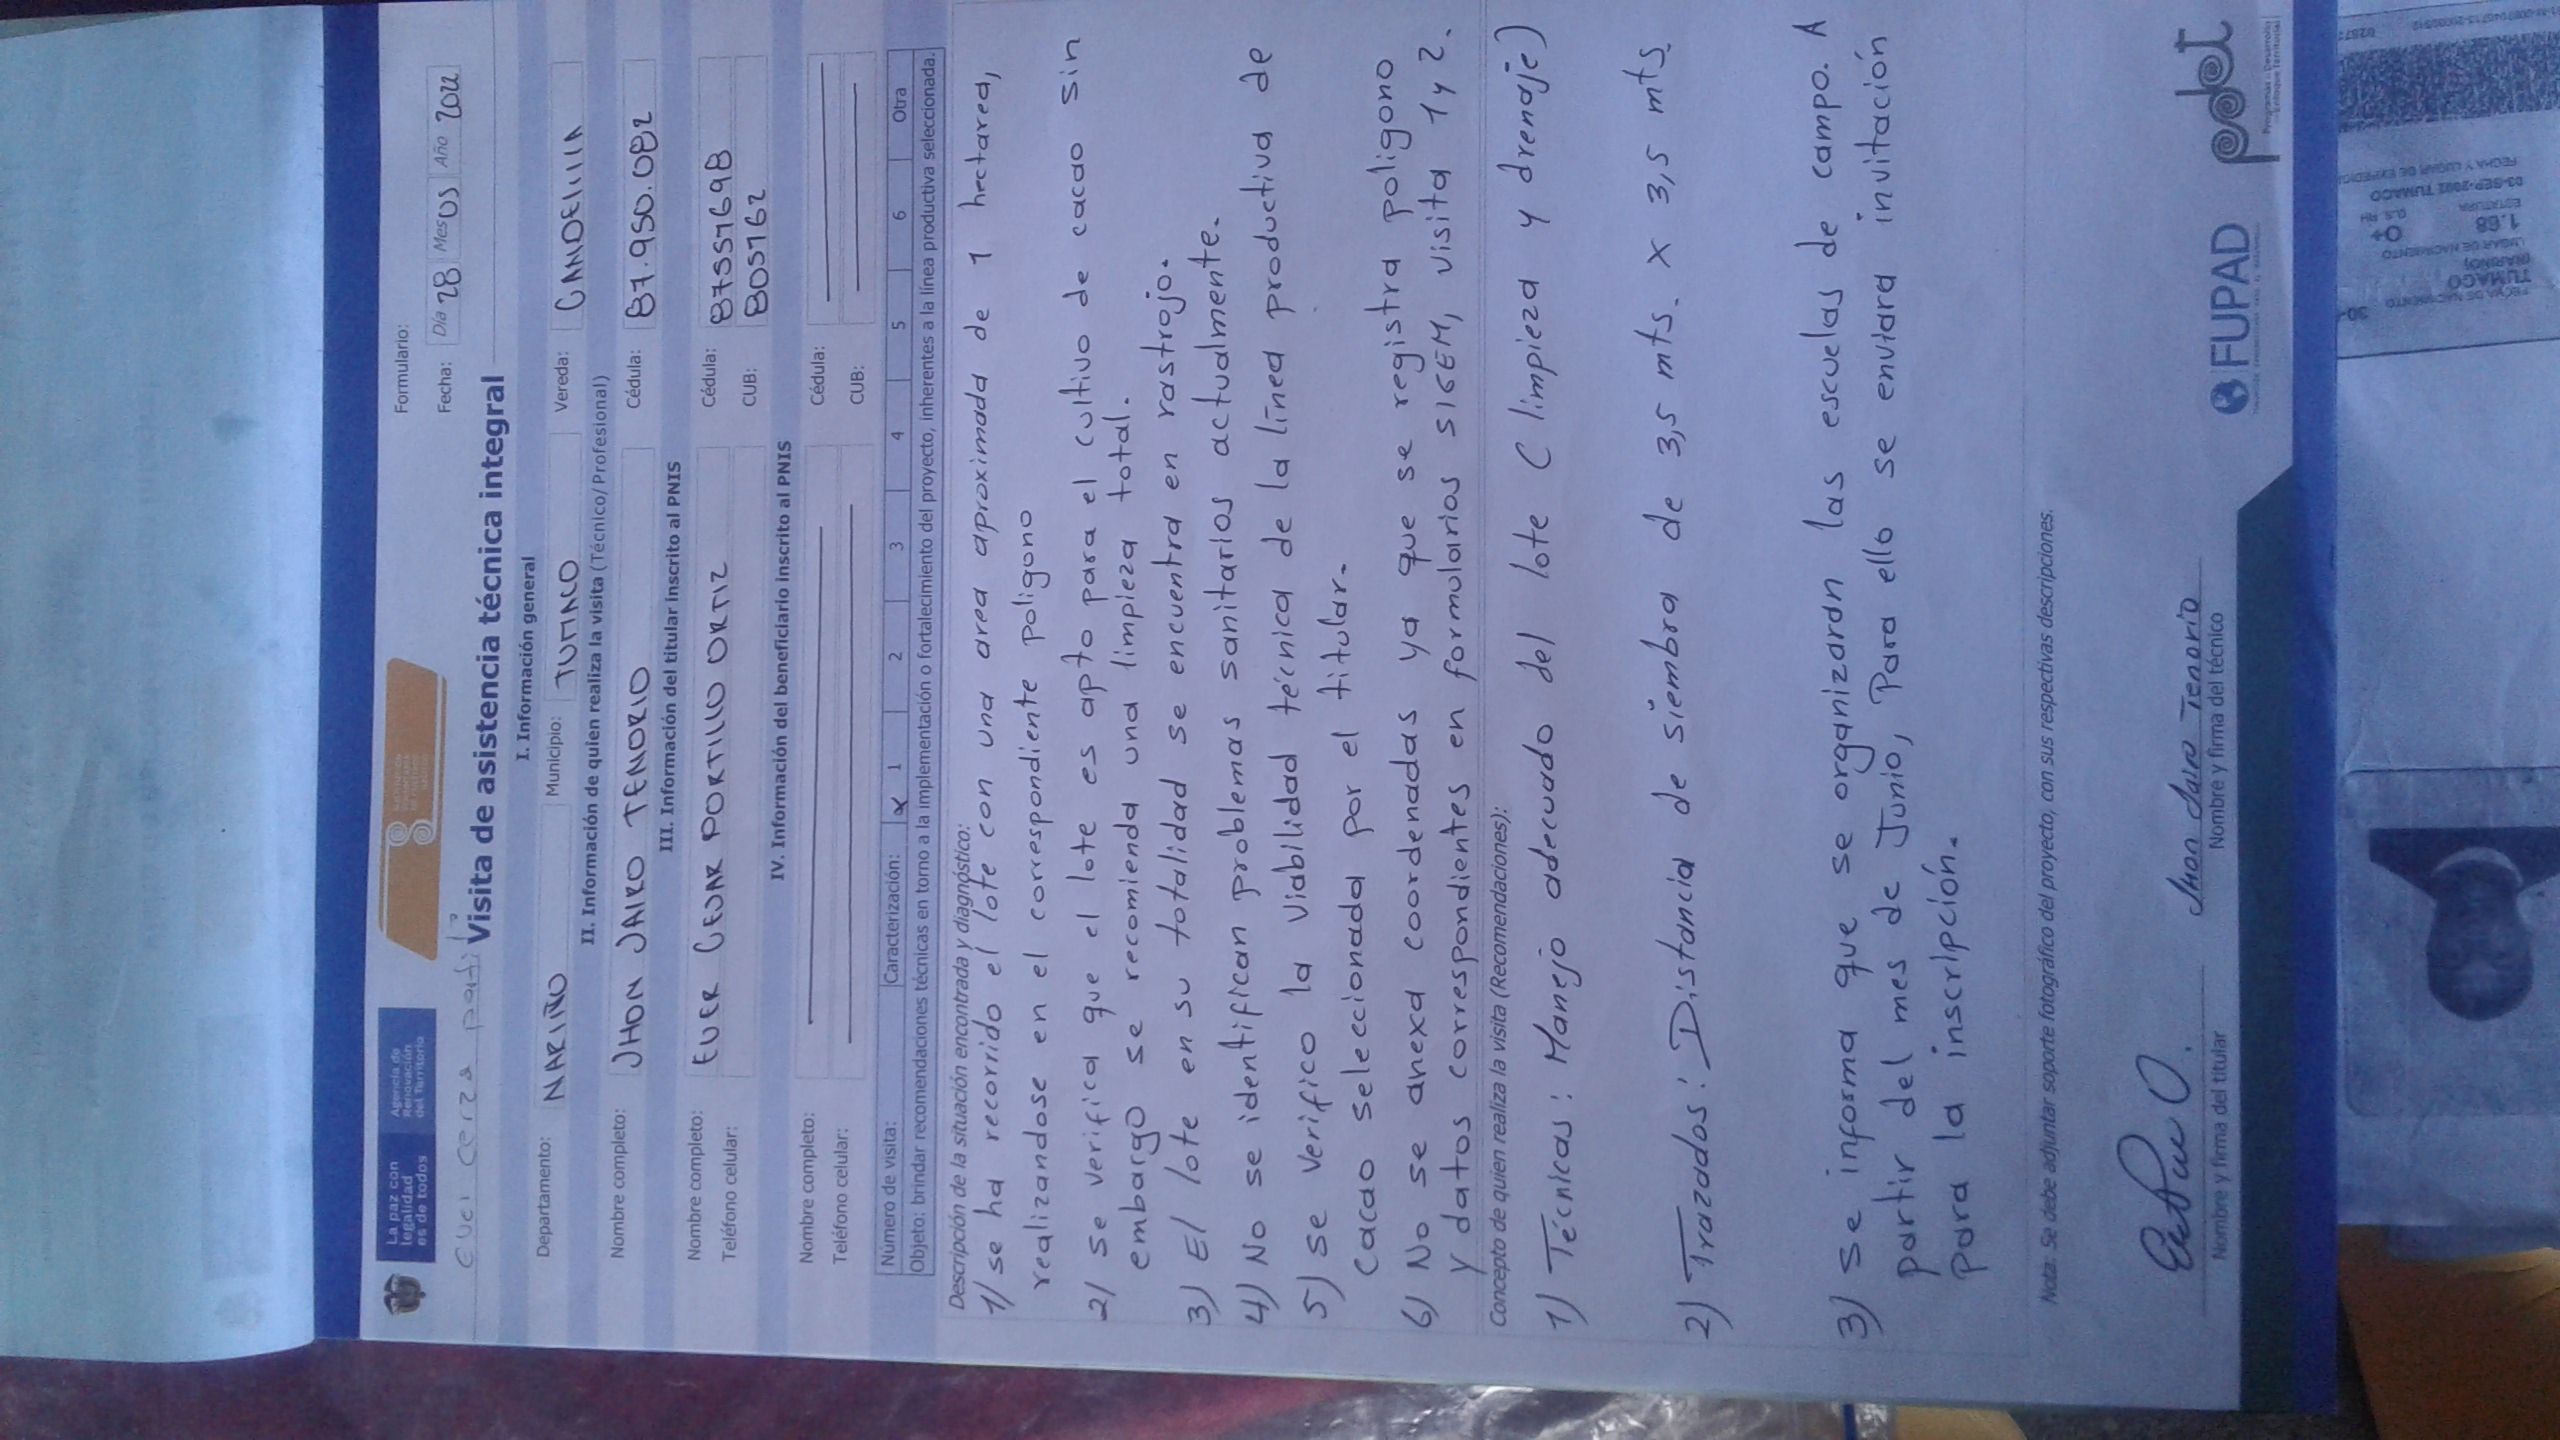 La paz con
legalidad
es de todos
Agencia de
Renovación
del Territorio
Formulario:
Fecha: Día 28 Mes 05 Año 2022
Visita de asistencia técnica integral
I. Información general
Departamento: NARIÑO Municipio: TUMACO Vereda: CANDELILLA
II. Información de quien realiza la visita (Técnico/Profesional)
Nombre completo: JHON JAIRO TENORIO Cédula: 87.950.082
III. Información del titular inscrito al PNIS
Nombre completo: EUER CESAR PORTILLO ORTIZ Cédula: 87551698
Teléfono celular: CUB: 805162
IV. Información del beneficiario inscrito al PNIS
Nombre completo: Cédula:
Teléfono celular: CUB:
Número de visita: Caracterización: x 1 2 3 4 5 6 Otra
Objeto: brindar recomendaciones técnicas en torno a la implementación o fortalecimiento del proyecto, inherentes a la línea productiva seleccionada.
Descripción de la situación encontrada y diagnóstico:
1) se ha recorrido el lote con una area aproximada de 1 hectarea,
realizandose en el correspondiente poligono
2) se verifica que el lote es apto para el cultivo de cacao sin
embargo se recomienda una limpieza total.
3) El lote en su totalidad se encuentra en rastrojo.
4) No se identifican problemas sanitarios actualmente.
5) se verifico la viabilidad técnica de la línea productiva de
cacao seleccionada por el titular.
6) No se anexa coordenadas ya que se registra poligono
y datos correspondientes en formularios SIGEM, visita 1 y 2.
Concepto de quien realiza la visita (Recomendaciones):
1) Técnicas: Manejo adecuado del lote (limpieza y drenaje)
2) Trazados: Distancia de siembra de 3,5 mts. x 3,5 mts.
3) se informa que se organizarán las escuelas de campo. A
partir del mes de Junio, Para ello se enviara invitación
para la inscripción.
Nota: Se debe adjuntar soporte fotográfico del proyecto, con sus respectivas descripciones.
Jhon Jairo Tenorio
Nombre y firma del titular Nombre y firma del técnico
FUPAD
pdet
Programas de Desarrollo
con Enfoque Territorial
FECHA DE NACIMIENTO
TUMACO
(NARIÑO)
LUGAR DE NACIMIENTO
1.68 O+
ESTATURA G.S. RH
03-SEP-2002 TUMACO
FECHA Y LUGAR DE EXPEDICION